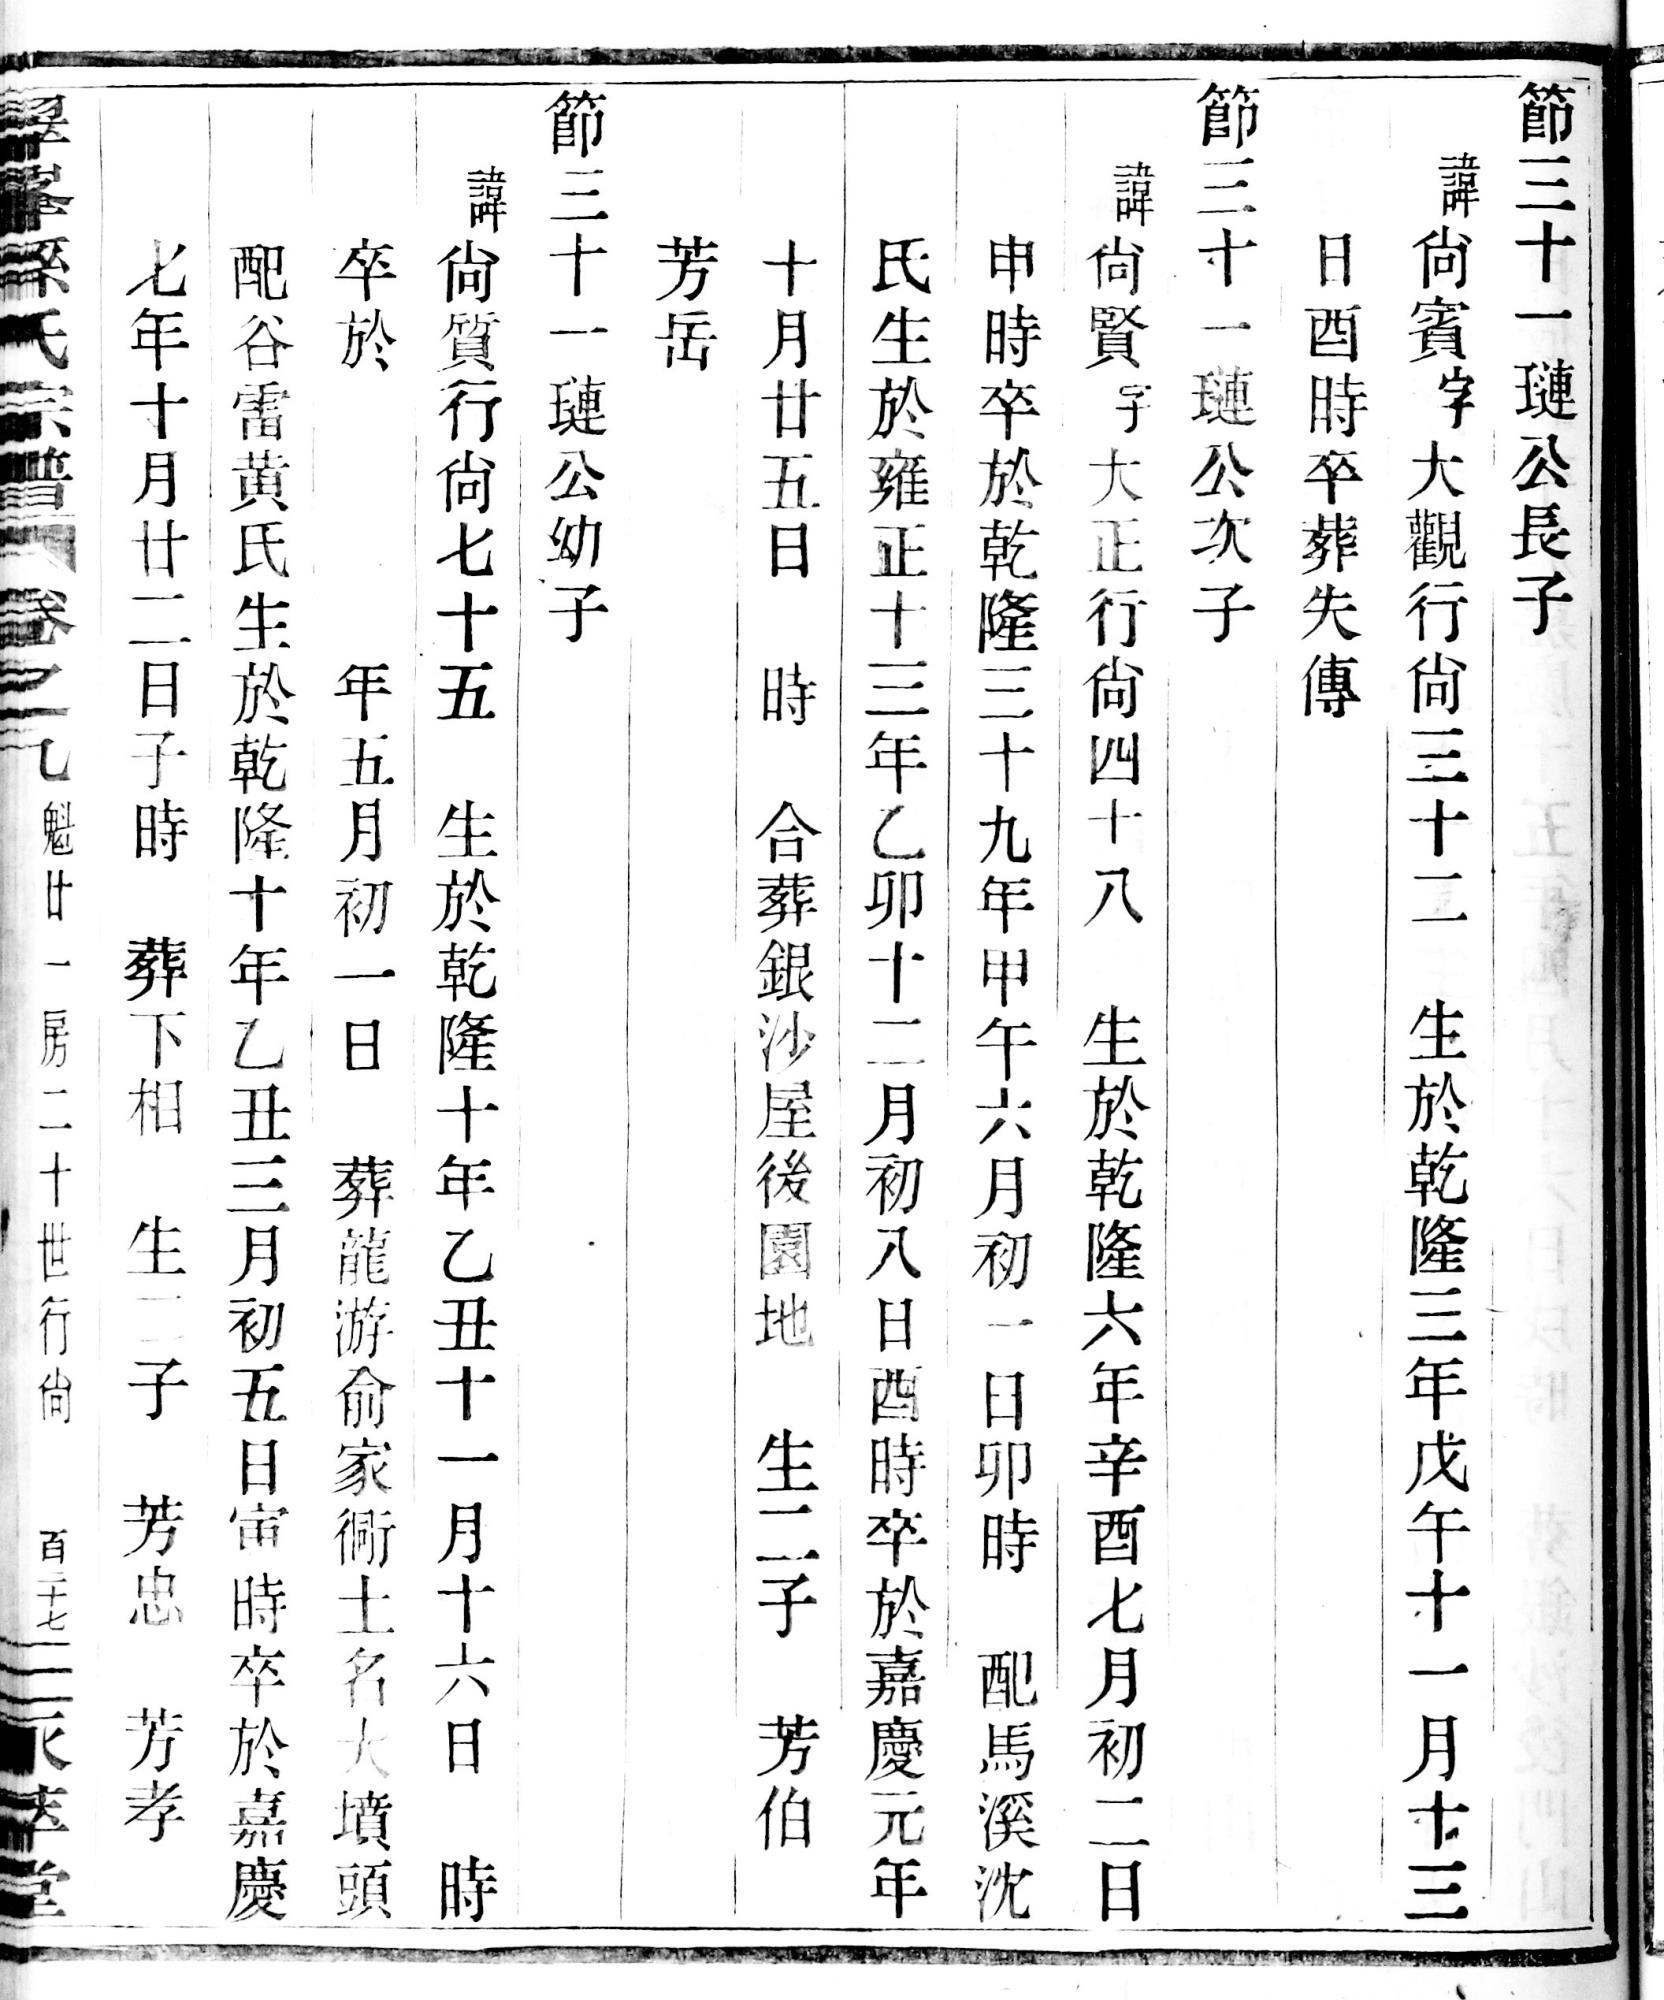 節三十一璉公長子
諱尙賓字大觀行尙三十二　生於乾隆三年戊午十一月十三
日酉時卒葬失傳
節三十一璉公次子
諱尙賢字大正行尙四十八　生於乾隆六年辛酉七月初二日
申時卒於乾隆三十九年甲午六月初一日卯時　配馬溪沈
氏生於雍正十三年乙卯十二月初八日酉時卒於嘉慶元年
十月廿五日　時　合葬銀沙屋後園地　生二子　芳伯
芳岳
節三十一璉公幼子
諱尙質行尙七十五　生於乾隆十年乙丑十一月十六日　時
卒於　　　　年五月初一日　葬龍游俞家衕土名大墳頭
配谷雷黄氏生於乾隆十年乙丑三月初五日寅時卒於嘉慶
七年十月廿二日子時　葬下相　生二子　芳忠　芳孝
氏宗譜　卷之　魁廿一房二十世行尙　百二十七　堂